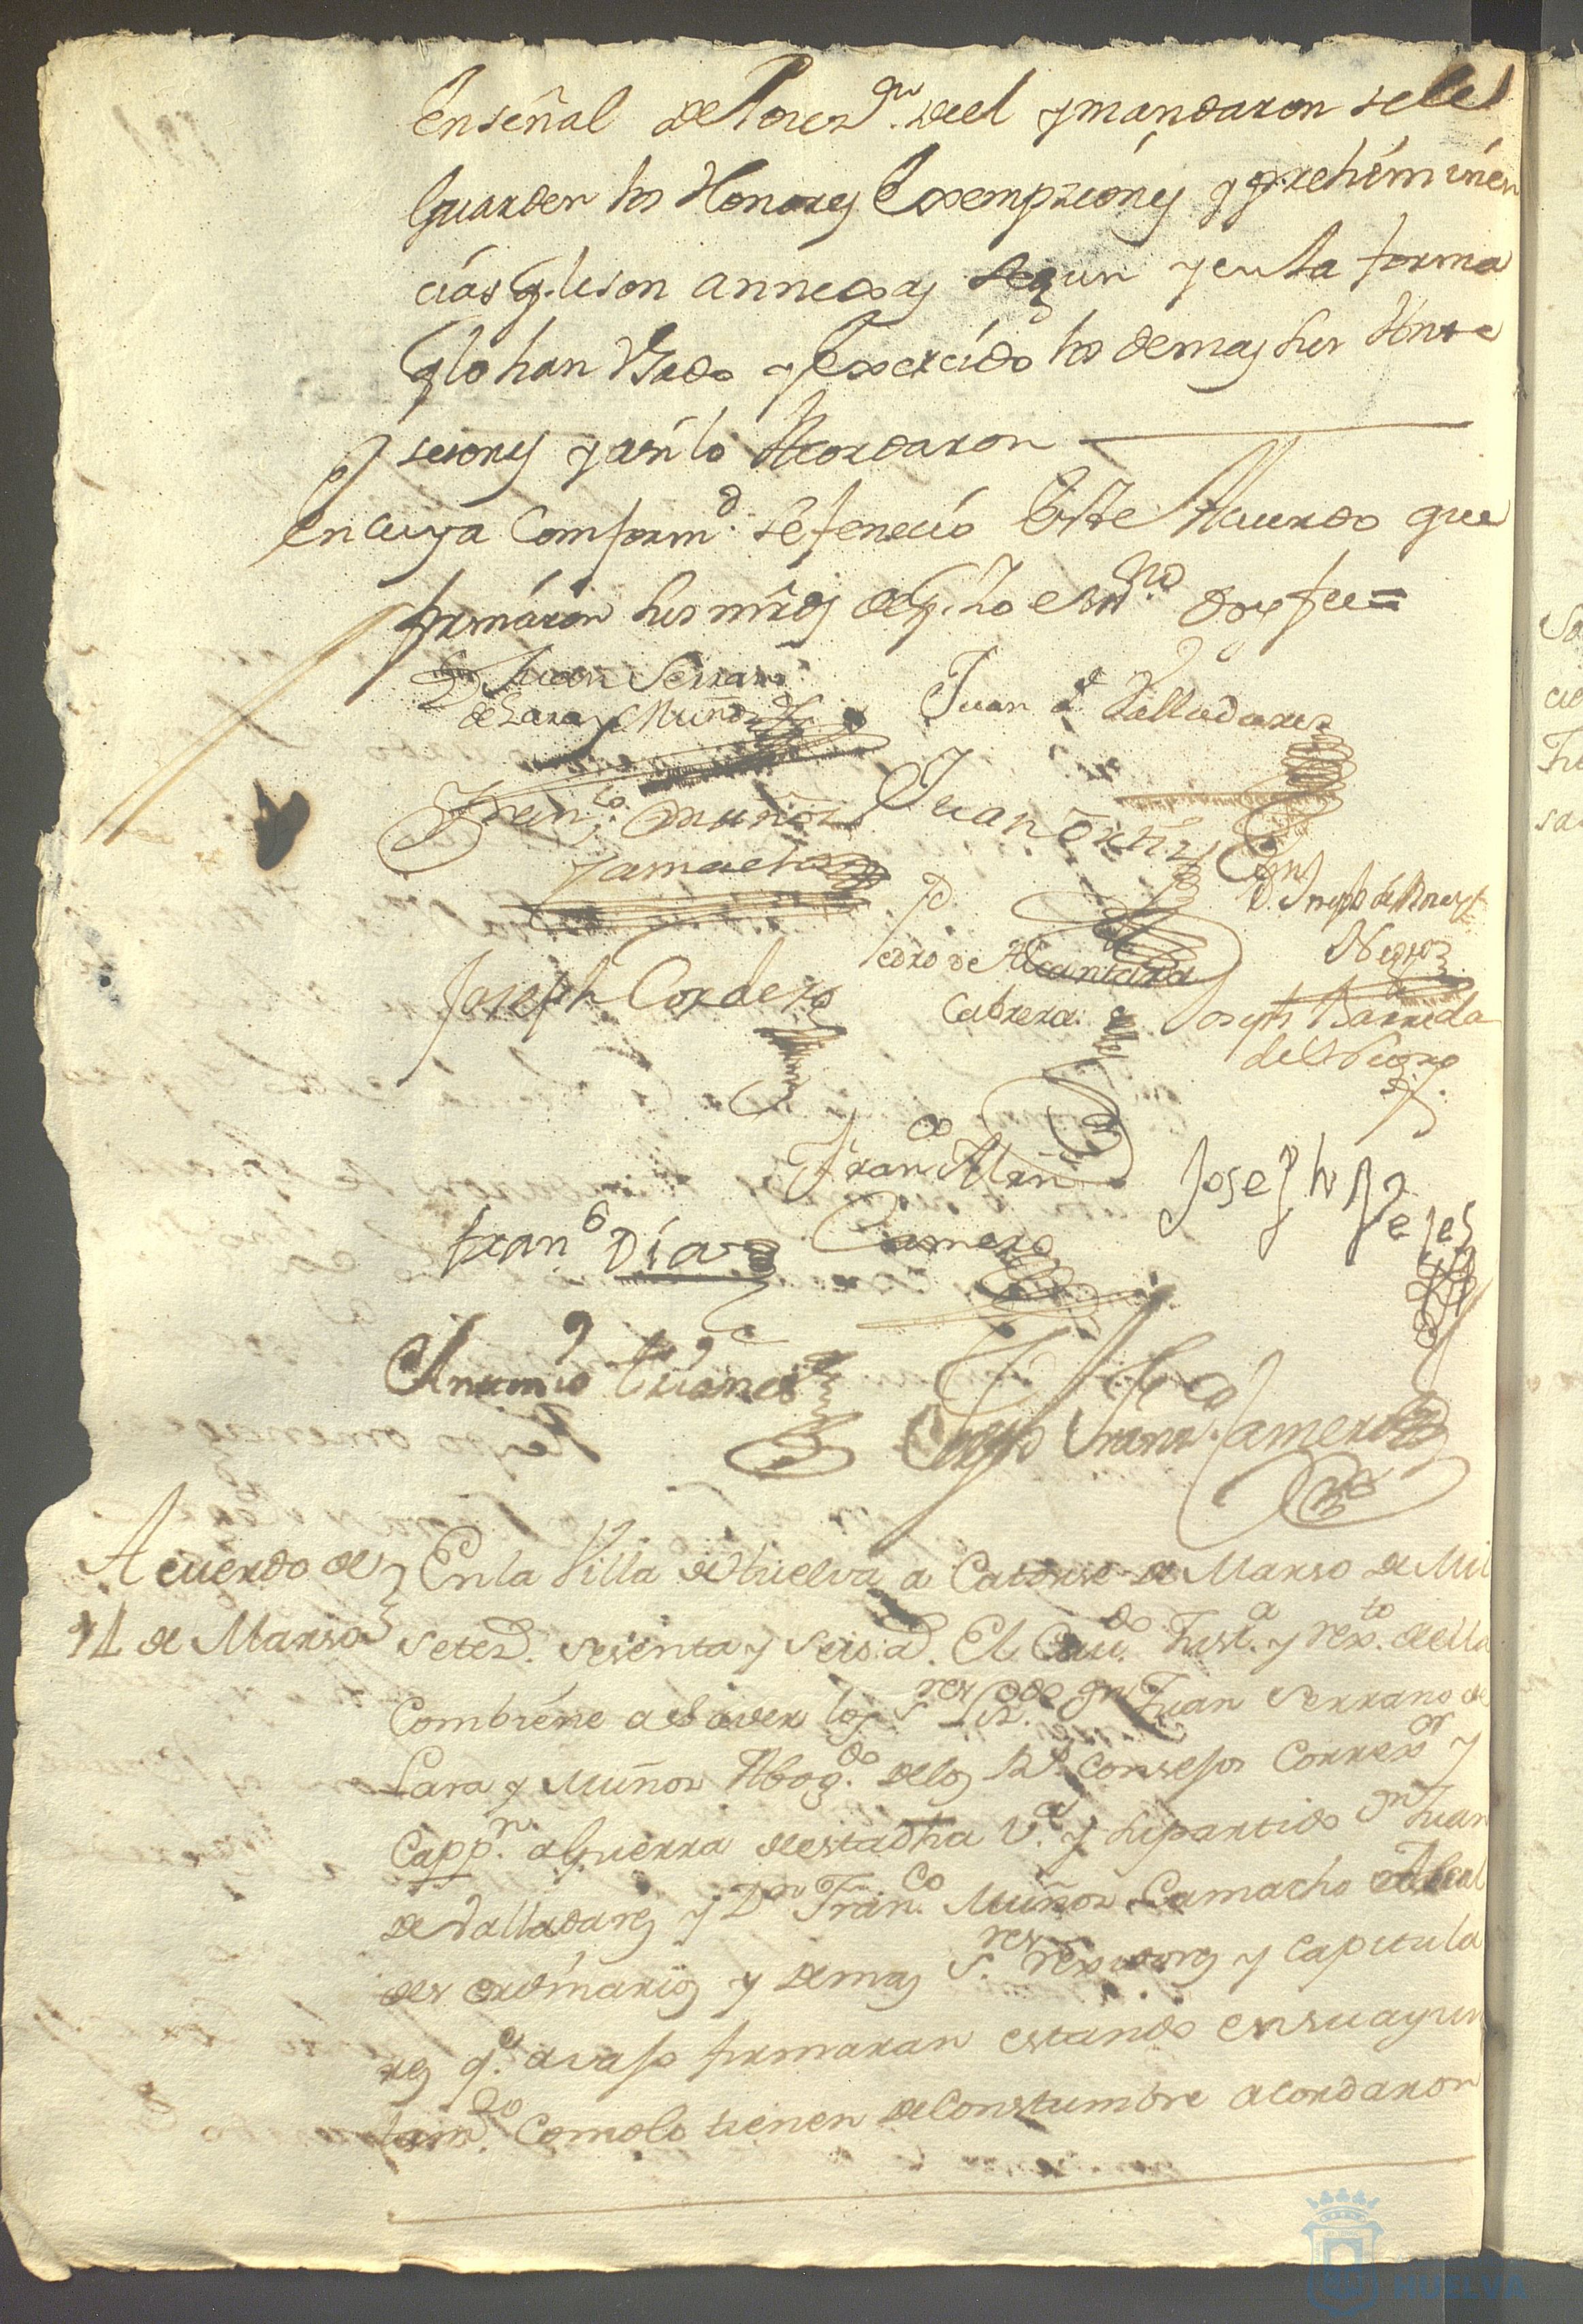 en señal de Poses.on de el y mandaron se les
Guarden los Honores Exempziónes y prehéminen
cias q. le son annexas segun y en la forma
q lo han Usado y Exercido los demas sus Ante
sesores y asi lo Acordaron
En cuya Comform.d se feneció Este Acuerdo que
firmáron sus mrds de q. Yo el ess.no doy fee =
Juan Serrano
de Lara y Muñoz
Juan de Valladares
Fran.co Muñoz
Camacho
Juan Ortiz
D. Joseph de
Negro
Joseph Cordero
Pedro de Alcantara
Cabrera
Joseph Barreda
del
Fran.co Mrn
Camero
Joseph
Fran.co Díaz
Antonio
Diego Franz.co Camero
Acuerdo de
14 de Marso
En la Villa de Huelva a Catorse de Marso de Mil
Setez. sesenta y seis a. El Cau.do Just.a y rex.to de ella
Combiéne a Saver los S.res Liz.do Dn Juan Serrano de
Lara y Muñoz Abog.do de los R.s Consejos Correx.or y
Capp.n a Guerra de esta dha V.a y su partido Dn Juan
de Valladares y Dn Fran.co Muñoz Camacho Alcal
des ordinarios y demas S.res rexidores y Capitula
res q.e avajo firmaran estando en su ayun
tam.to Como lo tienen de Constumbre acordaron
HUELVA